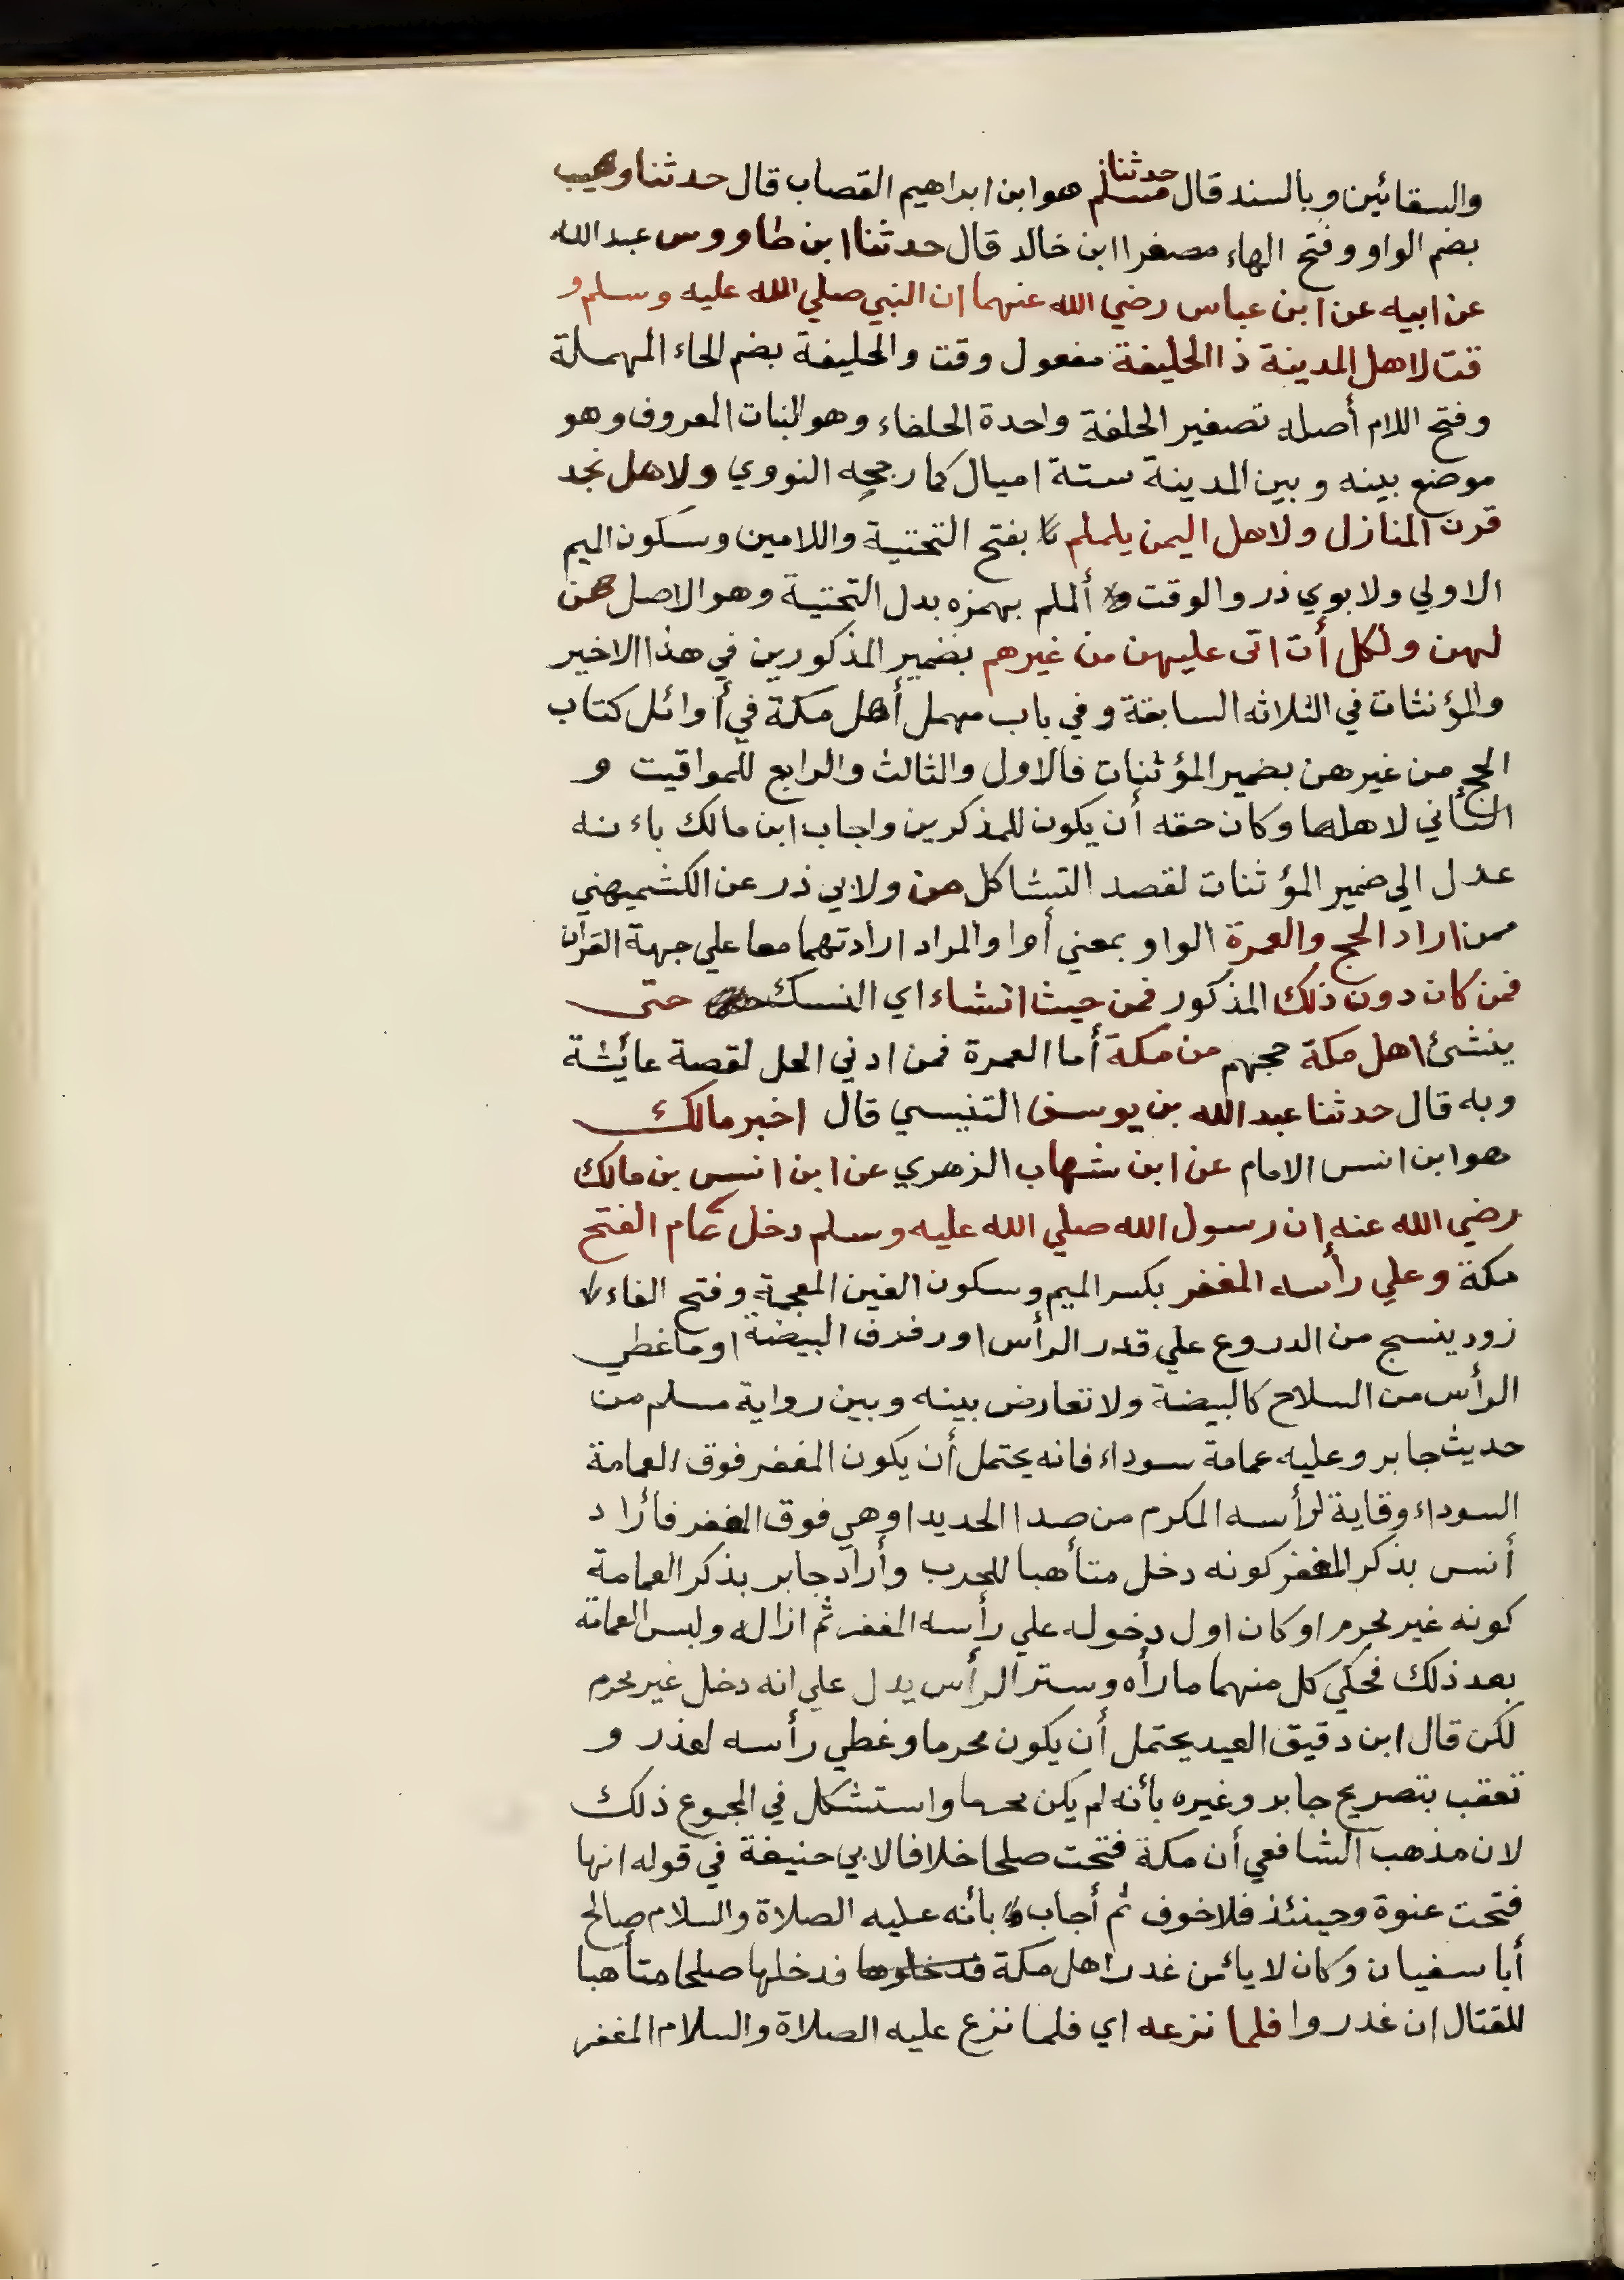 والسقائين وبالسند قال حدثنا مسلم هو ابن ابراهيم القصاب قال حدثنا وهيب
بضم الواو وفتح الهاء مصغرا ابن خالد قال حدثنا ابن طاووس عبد الله
عن ابيه عن ابن عباس رضي الله عنهما ان النبي صلي الله عليه وسلم و
قت لاهل المدينة ذا الحليفة مفعول وقت والحليفة بضم الحاء المهملة
وفتح اللام أصله تصغير الحلفة واحدة الحلفاء وهو النبات المعروف وهو
موضع بينه وبين المدينة ستة اميال كما رجحه النووي ولاهل نجد
قرن المنازل ولاهل اليمن يلملم بفتح التحتية واللامين وسكون الميم
الاولي ولابوي ذر والوقت ألملم بهمزه بدل التحتية وهو الاصل هن
لهن ولكل أت اتى عليهن من غيرهم بضمير المذكورين في هذا الاخير
والمؤنثات في الثلاثه السابقة وفي باب مهمل أهل مكة في أوائل كتاب
الحج من غيرهن بضمير المؤنثات فالاول والثالث والرابع للمواقيت و
الثاني لاهلها وكان حقه أن يكون للمذكرين واجاب ابن مالك بائنه
عدل الي ضمير المؤنثات لقصد التشاكل من ولابي ذر عن الكشميهني
ممن اراد الحج والعمرة الواو بمعني أوا والمراد ارادتهما معا علي جهة القرآن
فمن كان دون ذلك المذكور فمن حيث انشاء اي النسك حتى
ينشئ اهل مكة حجهم من مكة أما العمرة فمن ادني الحل لقصة عائشة
وبه قال حدثنا عبد الله بن يوسف التنيسي قال اخبر مالك
هو ابن انس الامام عن ابن شهاب الزهري عن ابن انس بن مالك
رضي الله عنه ان رسول الله صلي الله عليه وسلم دخل عام الفتح
مكة وعلي رأسه المغفر بكسر الميم وسكون الغين المعجمة وفتح الفاء
زود ينسج من الدروع علي قدر الرأس او رفرف البيضة او ما غطي
الرأس من السلاح كالبيضة ولا تعارض بينه وبين رواية مسلم من
حديث جابر وعليه عمامة سوداء فانه يحتمل أن يكون المغفر فوق العمامة
السوداء وقاية لرأسه المكرم من صدا الحديد او هي فوق المغفر فأراد
أنس بذكر المغفر كونه دخل متأهبا للحرب وأراد جابر بذكر العمامة
كونه غير محرم او كان اول دخوله علي رأسه المغفر ثم ازاله ولبس العمامة
بعد ذلك فحكي كل منهما ما رأه وستر الرأس يدل علي انه دخل غير محرم
لكن قال ابن دقيق العيد يحتمل أن يكون محرما وغطي رأسه لعذر و
تعقب بتصريح جابر وغيره بأنه لم يكن محرما واستشكل في المجموع ذلك
لان مذهب الشافعي أن مكة فتحت صلحا خلافا لابي حنيفة في قوله انها
فتحت عنوة وحينئذ فلا خوف ثم أجاب بأنه عليه الصلاة والسلام صالح
أبا سفيان وكان لا يائمن غدر اهل مكة فدخلوها فدخلها صلحا متأهبا
للقتال ان غدروا فلما نزعه اي فلما نزع عليه الصلاة والسلام المغفر